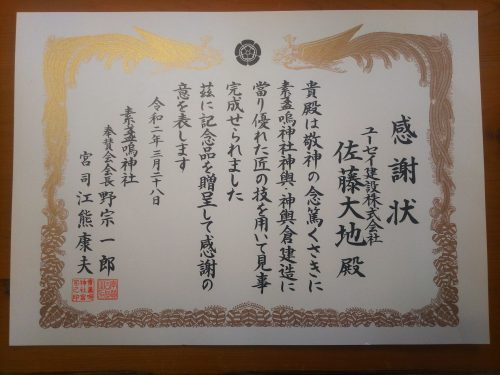 感謝状
ユーセイ建設株式会社
佐藤大地 殿
貴殿は敬神の念篤くさきに
素盞嗚神社神輿・神輿倉建造に
當り優れた匠の技を用いて見事
完成せられました
茲に記念品を贈呈して感謝の
意を表します
令和二年三月二十八日
素盞嗚神社
奉賛会会長 野宗一郎
宮司 江熊康夫